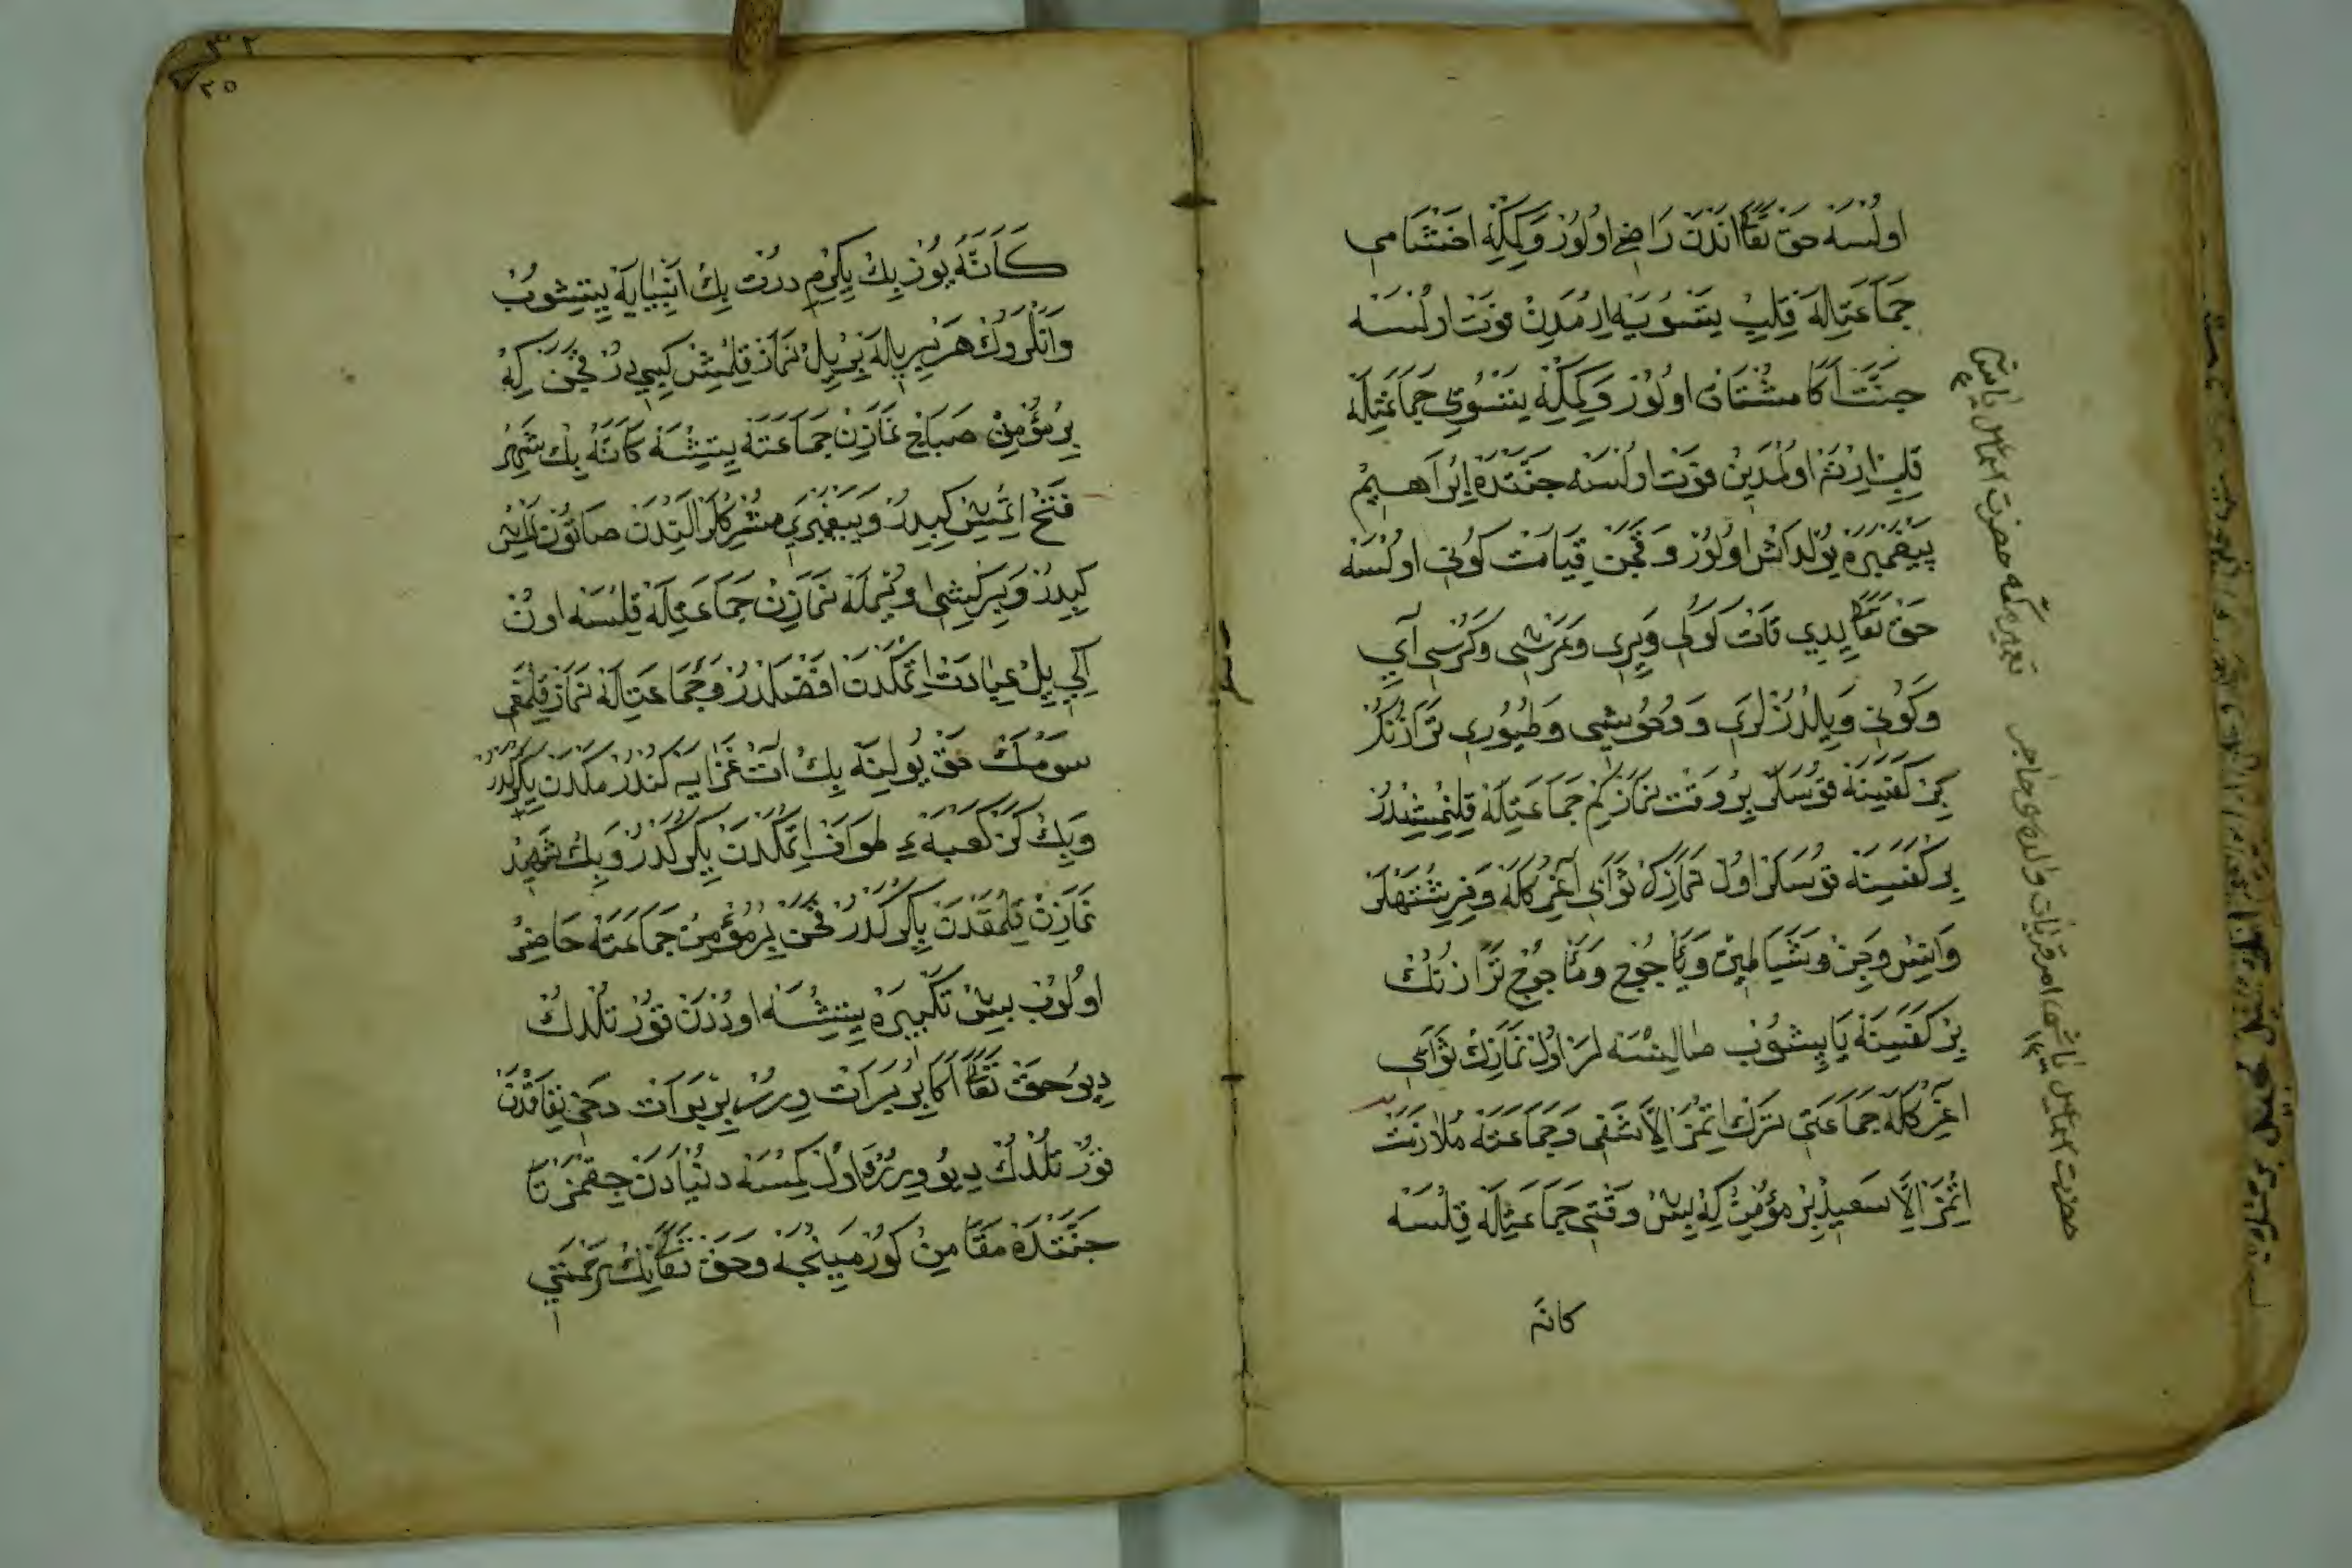 اولسه حق تعا اندن راضى اولور وكمكه اخشامى
جماعتله قلب يتسويه ارمدن فوت اولسه
جنت اكا مشتاق اولور وكمكه يتسوىى جماعتله
قلب ارته اولمدين فوت اولسه جنتده ابراهيم
پيغمبره يولداش اولور و قچن قيامت كونى اولسه
حق تعا يدى قات كوكى ويرى وعرشى وكرسى آى
وكونى ويلدزلرى و وحوشى وطيورى ترازنك
بر كفسينه قوسلر بر وقت نماز كم جماعتله قلنمشدر
بر كفسينه قوسلر اول نمازك ثوابى آغر كله وفرشتهلر
وانس وجن وشياطين ويأجوج ومأجوج ترازنك
بر كفسينه يابشوب صالنسهلر اول نمازك ثوابى
آغر كله جماعتى ترك اتمز الا شقى وجماعته ملازمت
اتمز الا سعيد بر مؤمن كه بش وقتى جماعتله قلسه
كانه
تعبير مكه حضرت اسماعيل ياشى
حضرت اسماعيل ياشى امر قربان والده‌سى هاجر
٣٢
٢٥
كأنه يوز بك يكرم درت بك انبيايه يتشوب
وانلروك هر بريله بر ييل نماز قلمش كيبى در قچن كه
بر مؤمن صباح نمازن جماعته يتشسه كأنه بك شهر
فتح اتمش كبيدر و پيغمبرى مشركلر الندن صاتون المش
كبيدر و بر كيشى اويله نمازن جماعتله قلسه اون
ايكى ييل عبادت اتمكدن افضلدر و جماعتله نماز قلمغى
سومك حق يولينه بك آت غزايه كندرمكدن يكركدر
وبك كز كعبهء طواف اتمكدن يكركدر وبك شهيد
نمازن قلمقدن يكركدر قچن بر مؤمن جماعته حاضر
اولوب بش تكبيره يتشسه اوددن قورتلدك
ديو حق تعا اكا بر برات ويرر بر برات دخى نفاقدن
قورتلدك ديو ويرر و اول كمسه دنيادن چقمز تا
جنتده مقامن كورمينجه وحق تعانك رحمتى